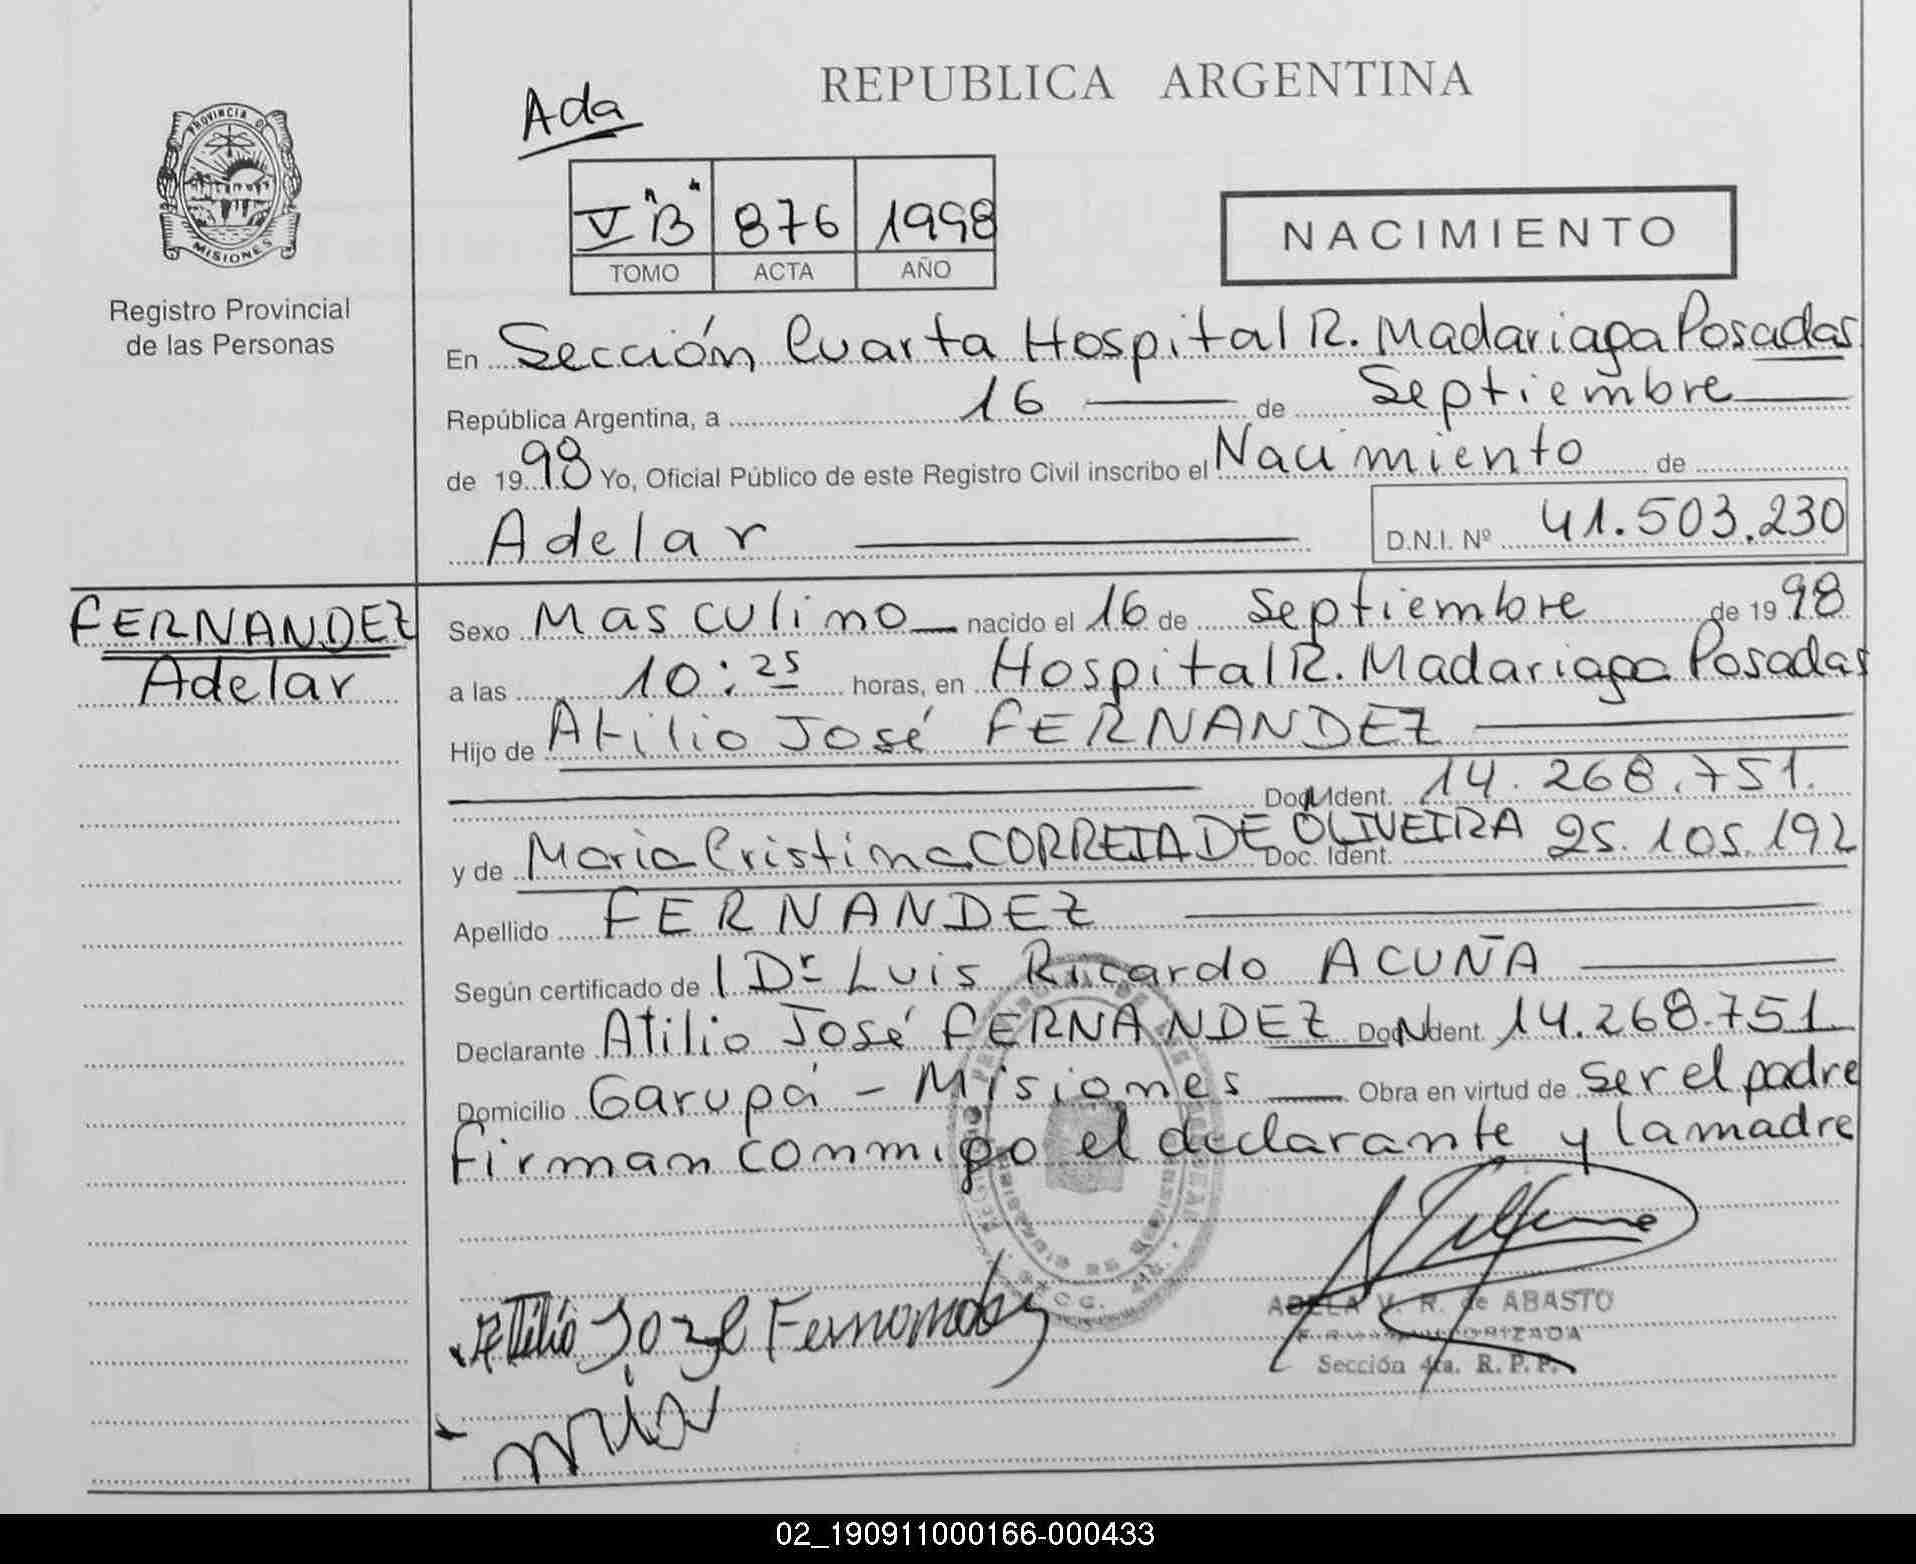 REPUBLICA ARGENTINA
Ada
PROVINCIA DE
MISIONES
Registro Provincial
de las Personas
V "B" 876 1998
TOMO ACTA AÑO
NACIMIENTO
En Sección Cuarta Hospital R. Madariaga Posadas
República Argentina, a 16 de Septiembre
de 1998 Yo, Oficial Público de este Registro Civil inscribo el Nacimiento de
Adelar D.N.I. Nº 41.503.230
FERNANDEZ
Adelar
Sexo Masculino nacido el 16 de Septiembre de 1998
a las 10:25 horas, en Hospital R. Madariaga Posadas
Hijo de Atilio José FERNANDEZ
Doc. Ident. 14.268.751.
y de María Cristina CORREIA DE OLIVEIRA Doc. Ident. 25.105.192
Apellido FERNANDEZ
Según certificado de l Dr Luis Ricardo ACUÑA
Declarante Atilio José FERNANDEZ Doc. Ident. 14.268.751
Domicilio Garupá - Misiones Obra en virtud de Ser el padre
firman conmigo el declarante y la madre
Atilio José Fernandez
ADELA V. R. de ABASTO
FIRMA AUTORIZADA
Sección 4ta. R. P. P.
02_190911000166-000433